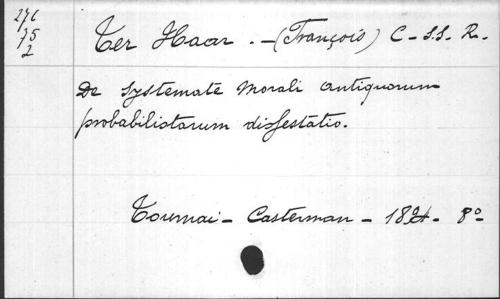 276
75
2
Ter Haar . - (François) C - SS. R.
De Systemate Morali antiquorum
probabilistarum dissestatio.
Tournai - Casterman - 1894 - 8º